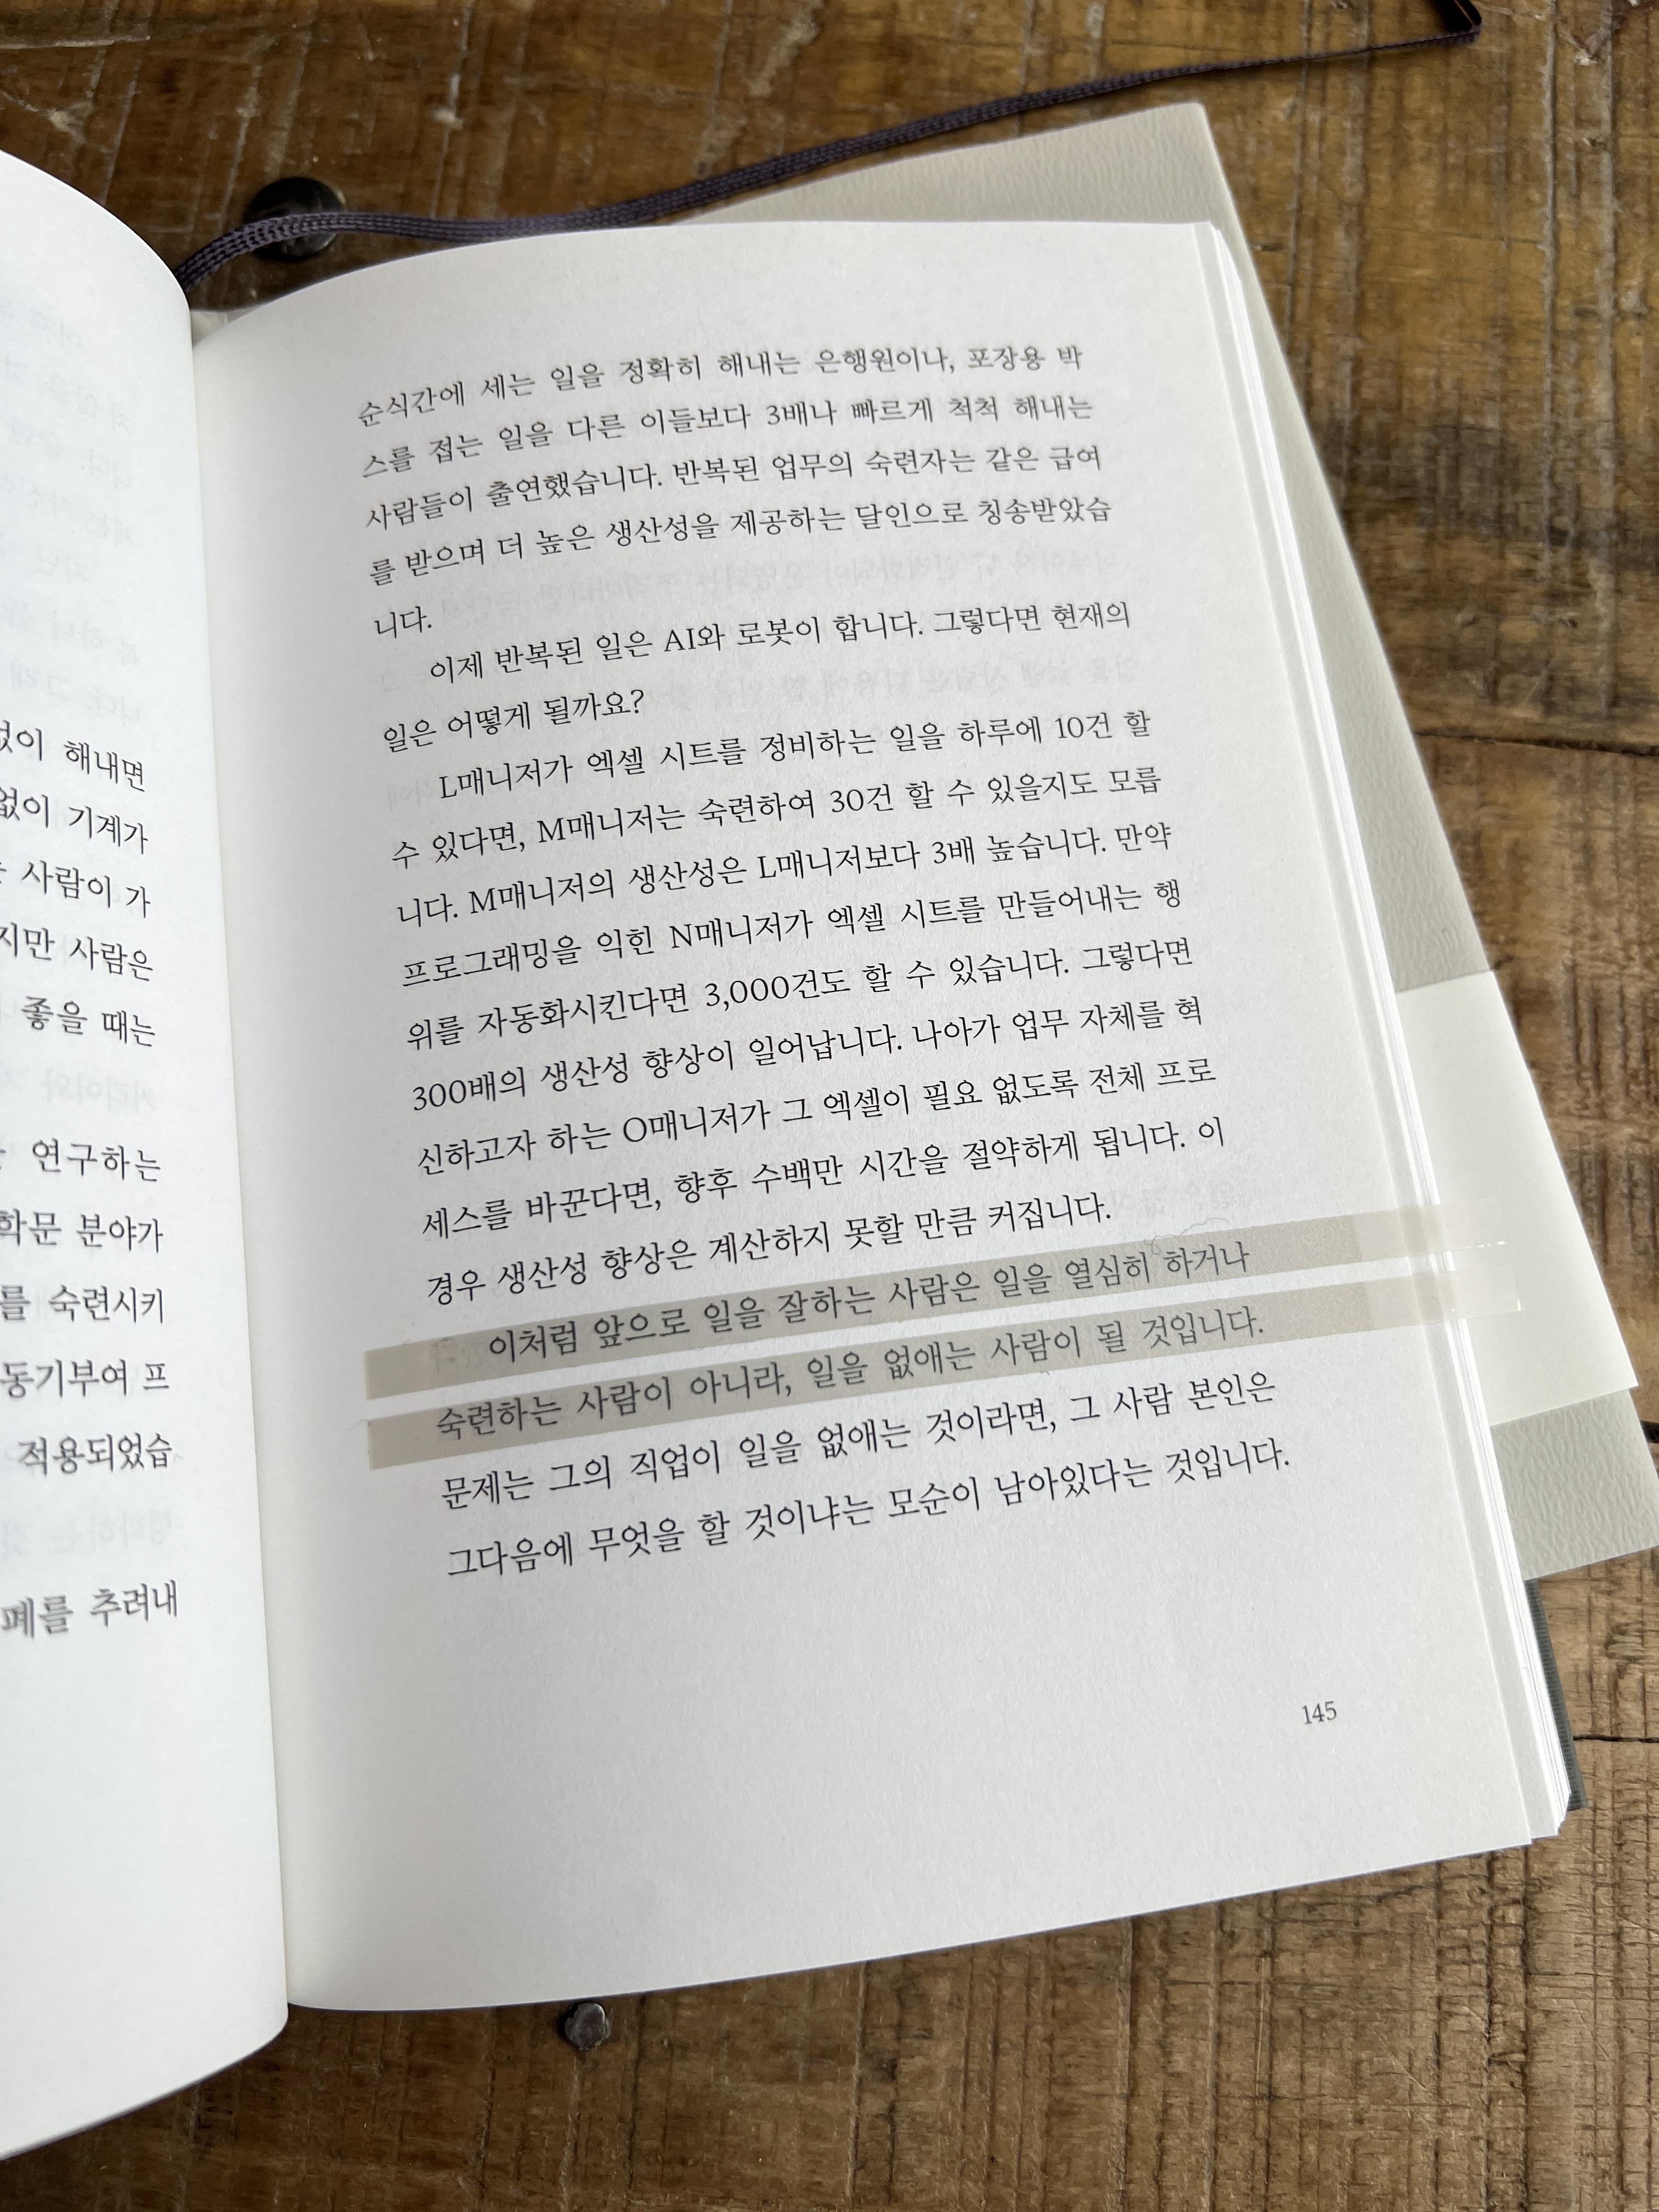 없이 해내면
없이 기계가
사람이 가
지만 사람은
좋을 때는
연구하는
학문 분야가
를 숙련시키
동기부여 프
적용되었습
폐를 추려내
순식간에 세는 일을 정확히 해내는 은행원이나, 포장용 박
스를 접는 일을 다른 이들보다 3배나 빠르게 척척 해내는
사람들이 출연했습니다. 반복된 업무의 숙련자는 같은 급여
를 받으며 더 높은 생산성을 제공하는 달인으로 칭송받았습
니다.
이제 반복된 일은 AI와 로봇이 합니다. 그렇다면 현재의
일은 어떻게 될까요?
L매니저가 엑셀 시트를 정비하는 일을 하루에 10건 할
수 있다면, M매니저는 숙련하여 30건 할 수 있을지도 모릅
니다. M매니저의 생산성은 L매니저보다 3배 높습니다. 만약
프로그래밍을 익힌 N매니저가 엑셀 시트를 만들어내는 행
위를 자동화시킨다면 3,000건도 할 수 있습니다. 그렇다면
300배의 생산성 향상이 일어납니다. 나아가 업무 자체를 혁
신하고자 하는 O매니저가 그 엑셀이 필요 없도록 전체 프로
세스를 바꾼다면, 향후 수백만 시간을 절약하게 됩니다. 이
경우 생산성 향상은 계산하지 못할 만큼 커집니다.
이처럼 앞으로 일을 잘하는 사람은 일을 열심히 하거나
숙련하는 사람이 아니라, 일을 없애는 사람이 될 것입니다.
문제는 그의 직업이 일을 없애는 것이라면, 그 사람 본인은
그다음에 무엇을 할 것이냐는 모순이 남아있다는 것입니다.
145